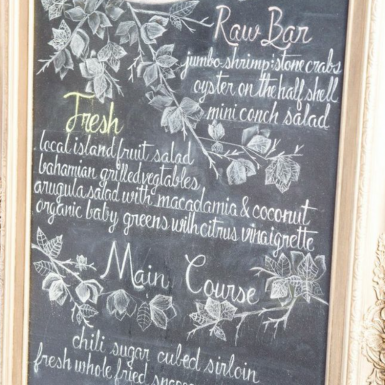 Raw Bar
jumbo shrimp • stone crabs
oyster on the half shell
mini conch salad
Fresh
local island fruit salad
bahamian grilled vegtables
arugula salad with macadamia & coconut
organic baby greens with citrus vinaigrette
Main Course
chili sugar cubed sirloin
fresh whole fried